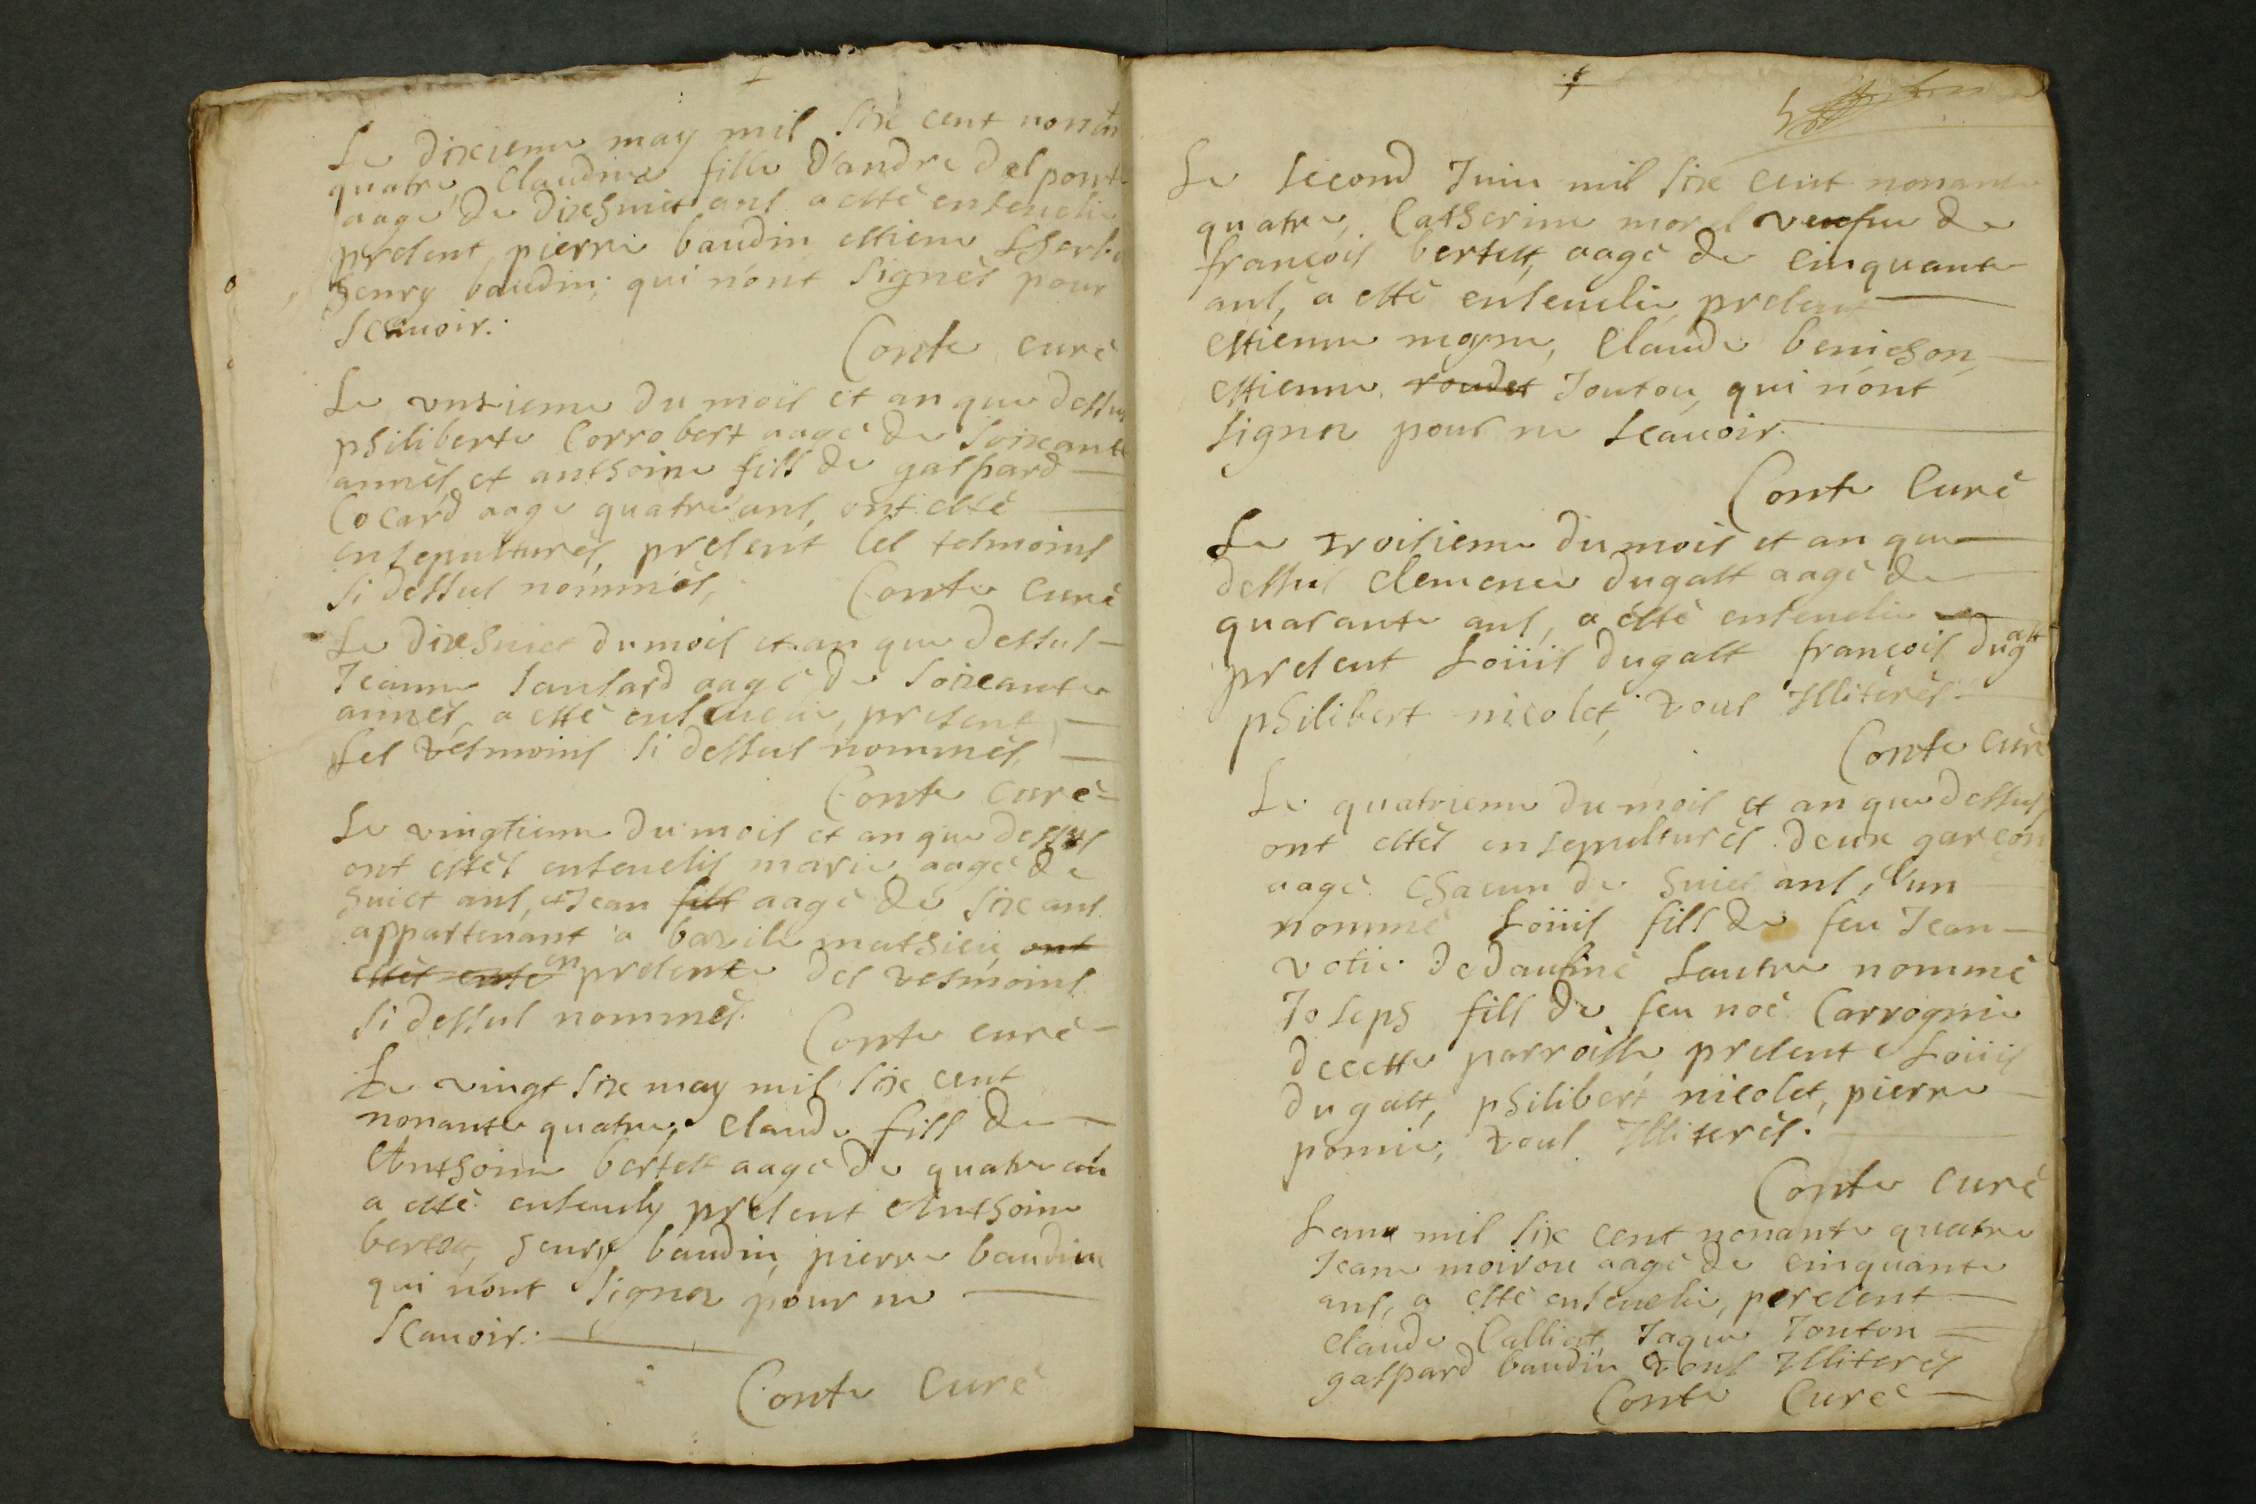 Le dixieme may mil six cent nonte
quatre, Claudine fille d'andre delponte
aagé de dixhuict ans a esté ensevelie
present pierre baudin estiene
henry baudin, qui n'ont signés pour
scavoir.
Conte curé
Le unzieme du mois et an que dessus
philiberte Corrobert aagé de soixante
annés, et anthoine fils de gaspard
Cocard aage quatre ans, ont esté
ensepulturés, present les tesmoins
si dessus nommés,
Conte curé
Le dixhuict du mois et an que dessus
Jeanne saulard aagé de soixante
annés, a esté ensevelie, present
les tesmoins si dessus nommés,
Conte curé
Le vingtieme du mois et an que dessus
ont estés ensevelis marie aagé de
huict ans, et Jean fils aagé de six ans
appartenant a bazile mathieu, ont
estés ense en presente des tesmoins
si dessus nommés.
Conte curé
Le vingt six may mil six cent
nonante quatre, claude fils de
Anthoine bertett aagé de quatre an
a esté ensevely present Anthoine
bertett, henry baudin, pierre baudin
qui n'ont signer pour ne
scavoir.
Conte Curé
Le second Juin mil six cent nonante
quatre, Catherine morel veufue de
françois bertett, aagé de cinquante
ans, a esté ensevelie, present
estienne moyne, Claude benichon,
estienne roudet Joutou, qui n'ont
signer pour ne scavoir.
Conte Curé
Le troisieme du mois et an que
dessus clemence dugatt aagé de
quarante ans, a esté ensevelie
present Loüis dugatt françois dugatt
philibert nicolet, tous Illiterés.
Conte curé
Le quatrieme du mois et an que dessus
ont estés ensepulturés deux garçon
aagé chacun de huict ans, l'un
nommé Loüis fils de feu Jean
votie dedaufiné Lautre nommé
Joseph fils de feu noé Carrognie
decette parroisse, presente Loüis
dugatt, philibert nicolet, pierre
pomie, tous Illiterés.
Conte curé
Lan mil six cent nonante quatre
Jeane moirou aagé de cinquante
ans, a esté ensevelie, peresent
claude Calliat, Jaque Jouton
gaspard baudin tous Illiterés
Conte Curé